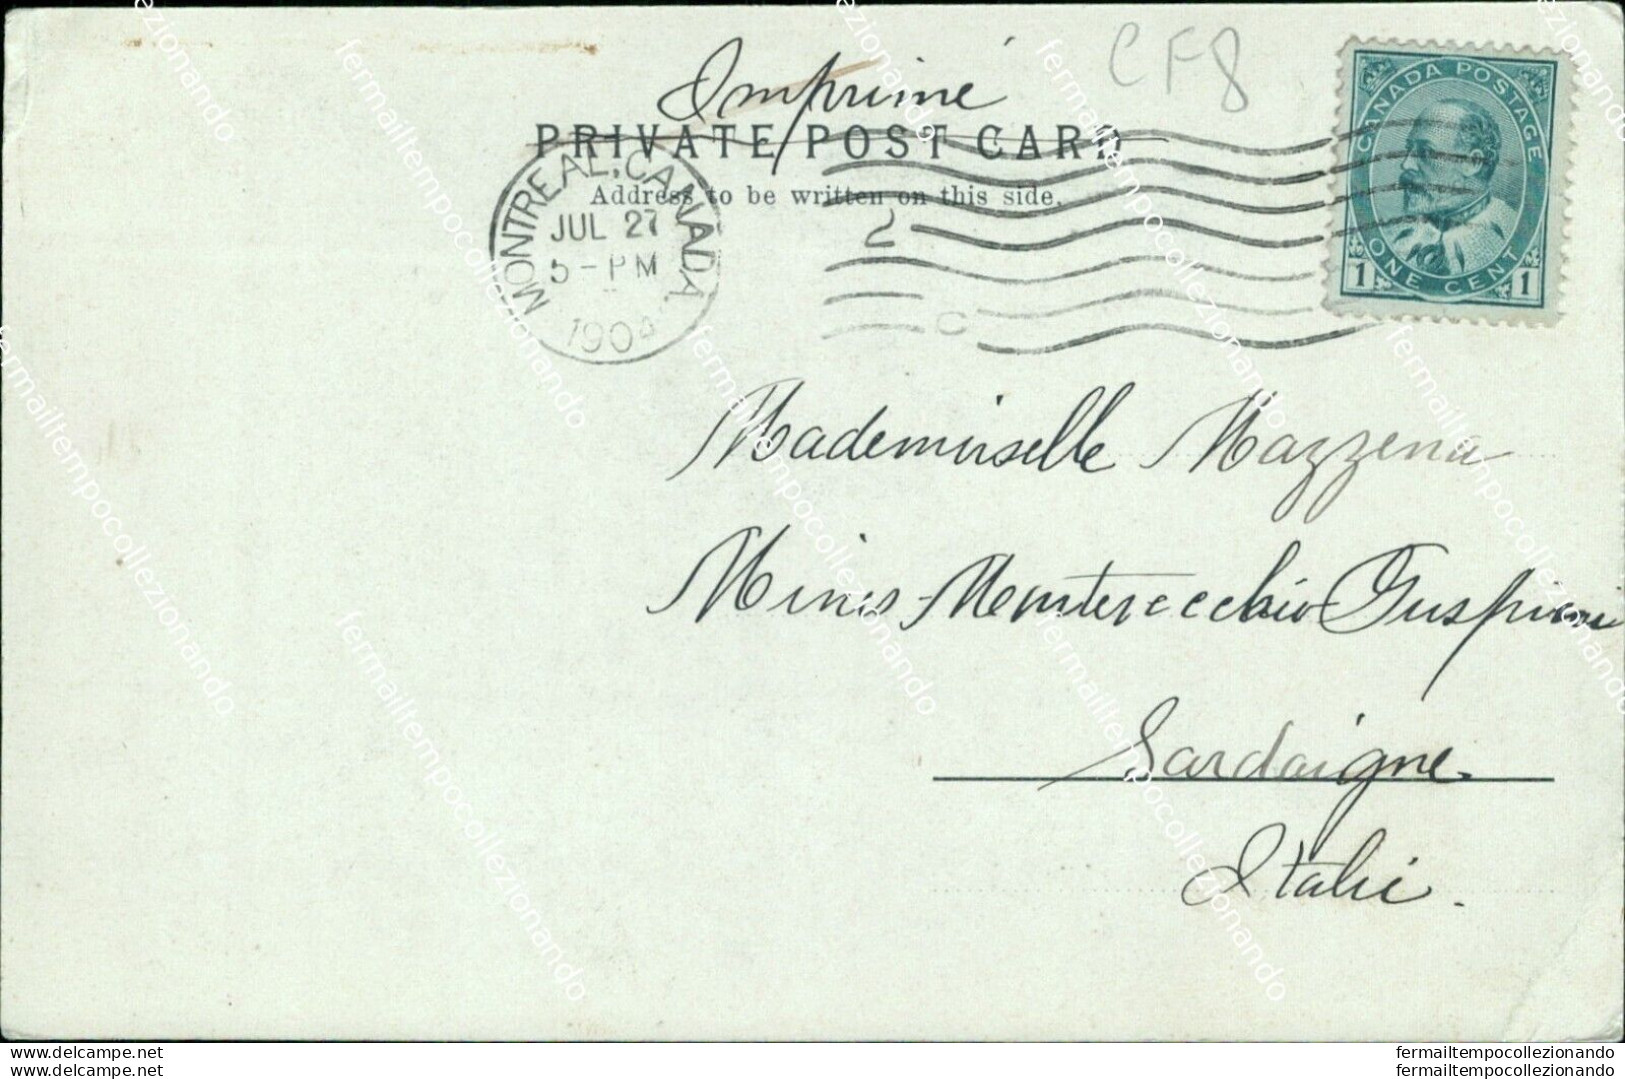 Imprimé
CF8
PRIVATE POST CARD
Address to be written on this side.
MONTREAL, CANADA
JUL 27
5-PM
1904
2
C
CANADA POSTAGE
1 ONE CENT 1
Mademoiselle Mazzena
Minis-Montevecchio Guspini
Sardaigne
Italie.
www.delcampe.net
www.delcampe.net
fermailtempocollezionando
fermailtempocollezionando